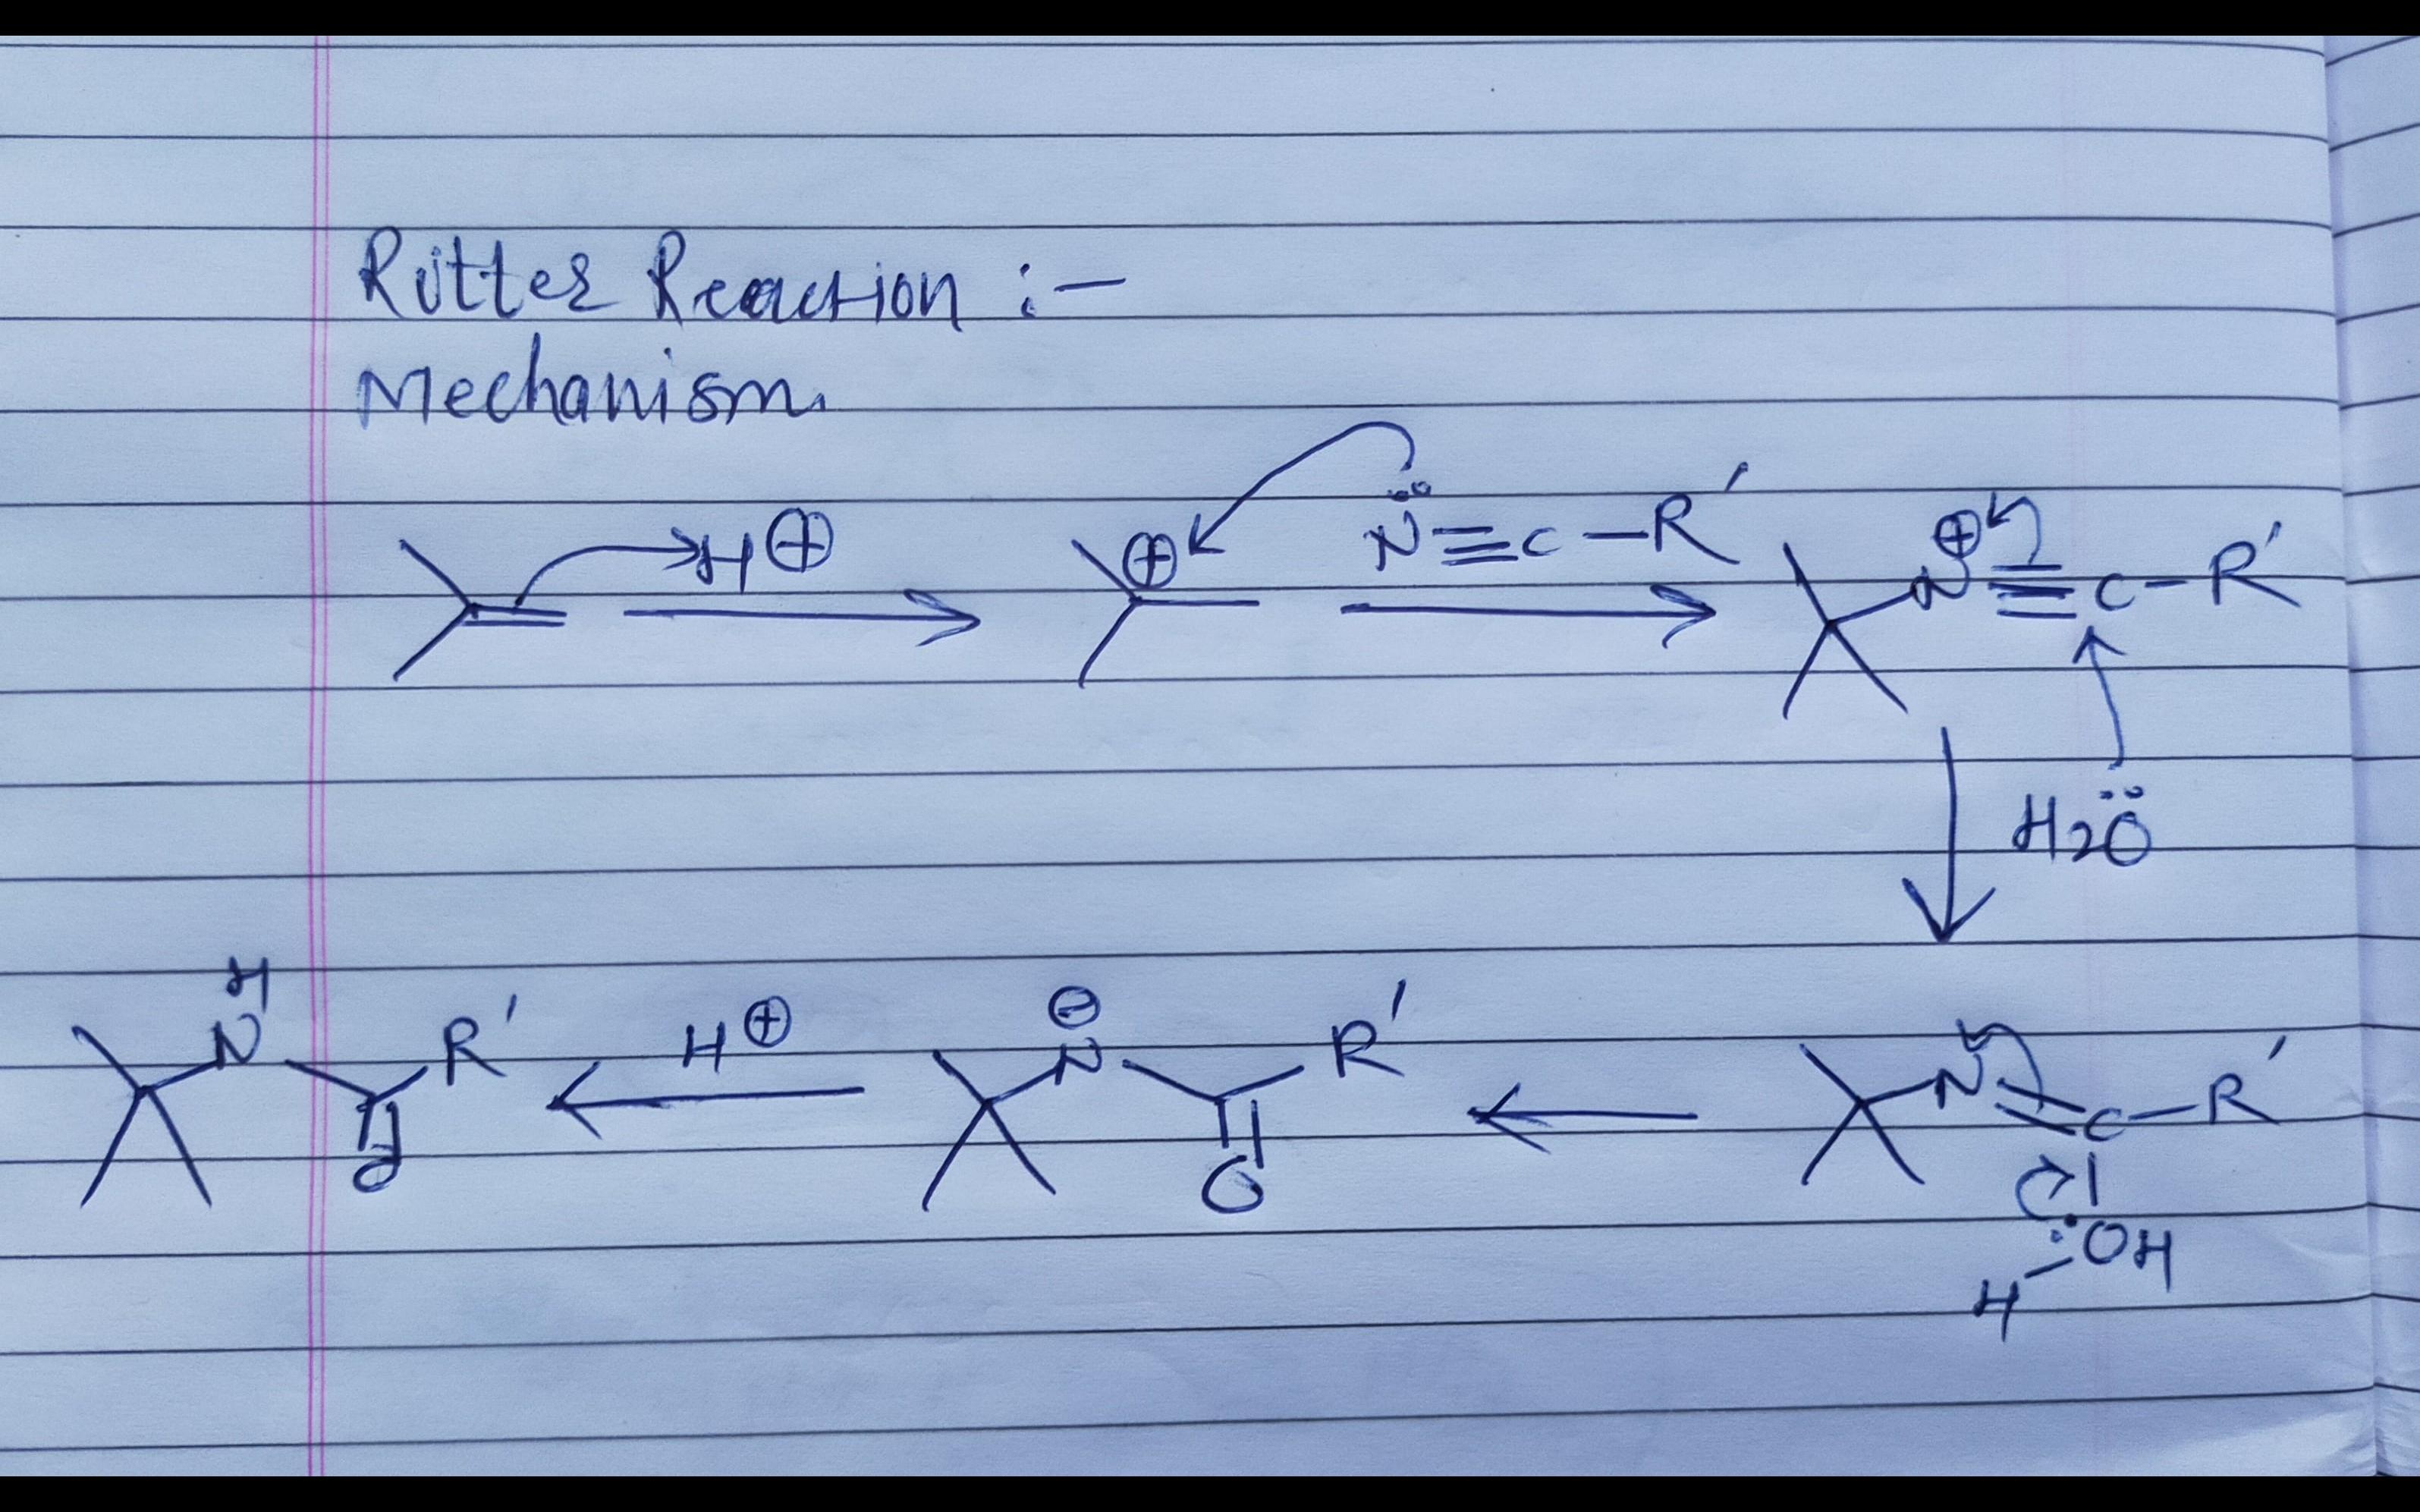 Ritter Reaction :-
Mechanism.
H⊕
⊕ N̈≡C-R'
⊕
N≡C-R'
H2Ö
H
N R' H⊕ ⊖
N R' N=C-R'
O O :OH
H